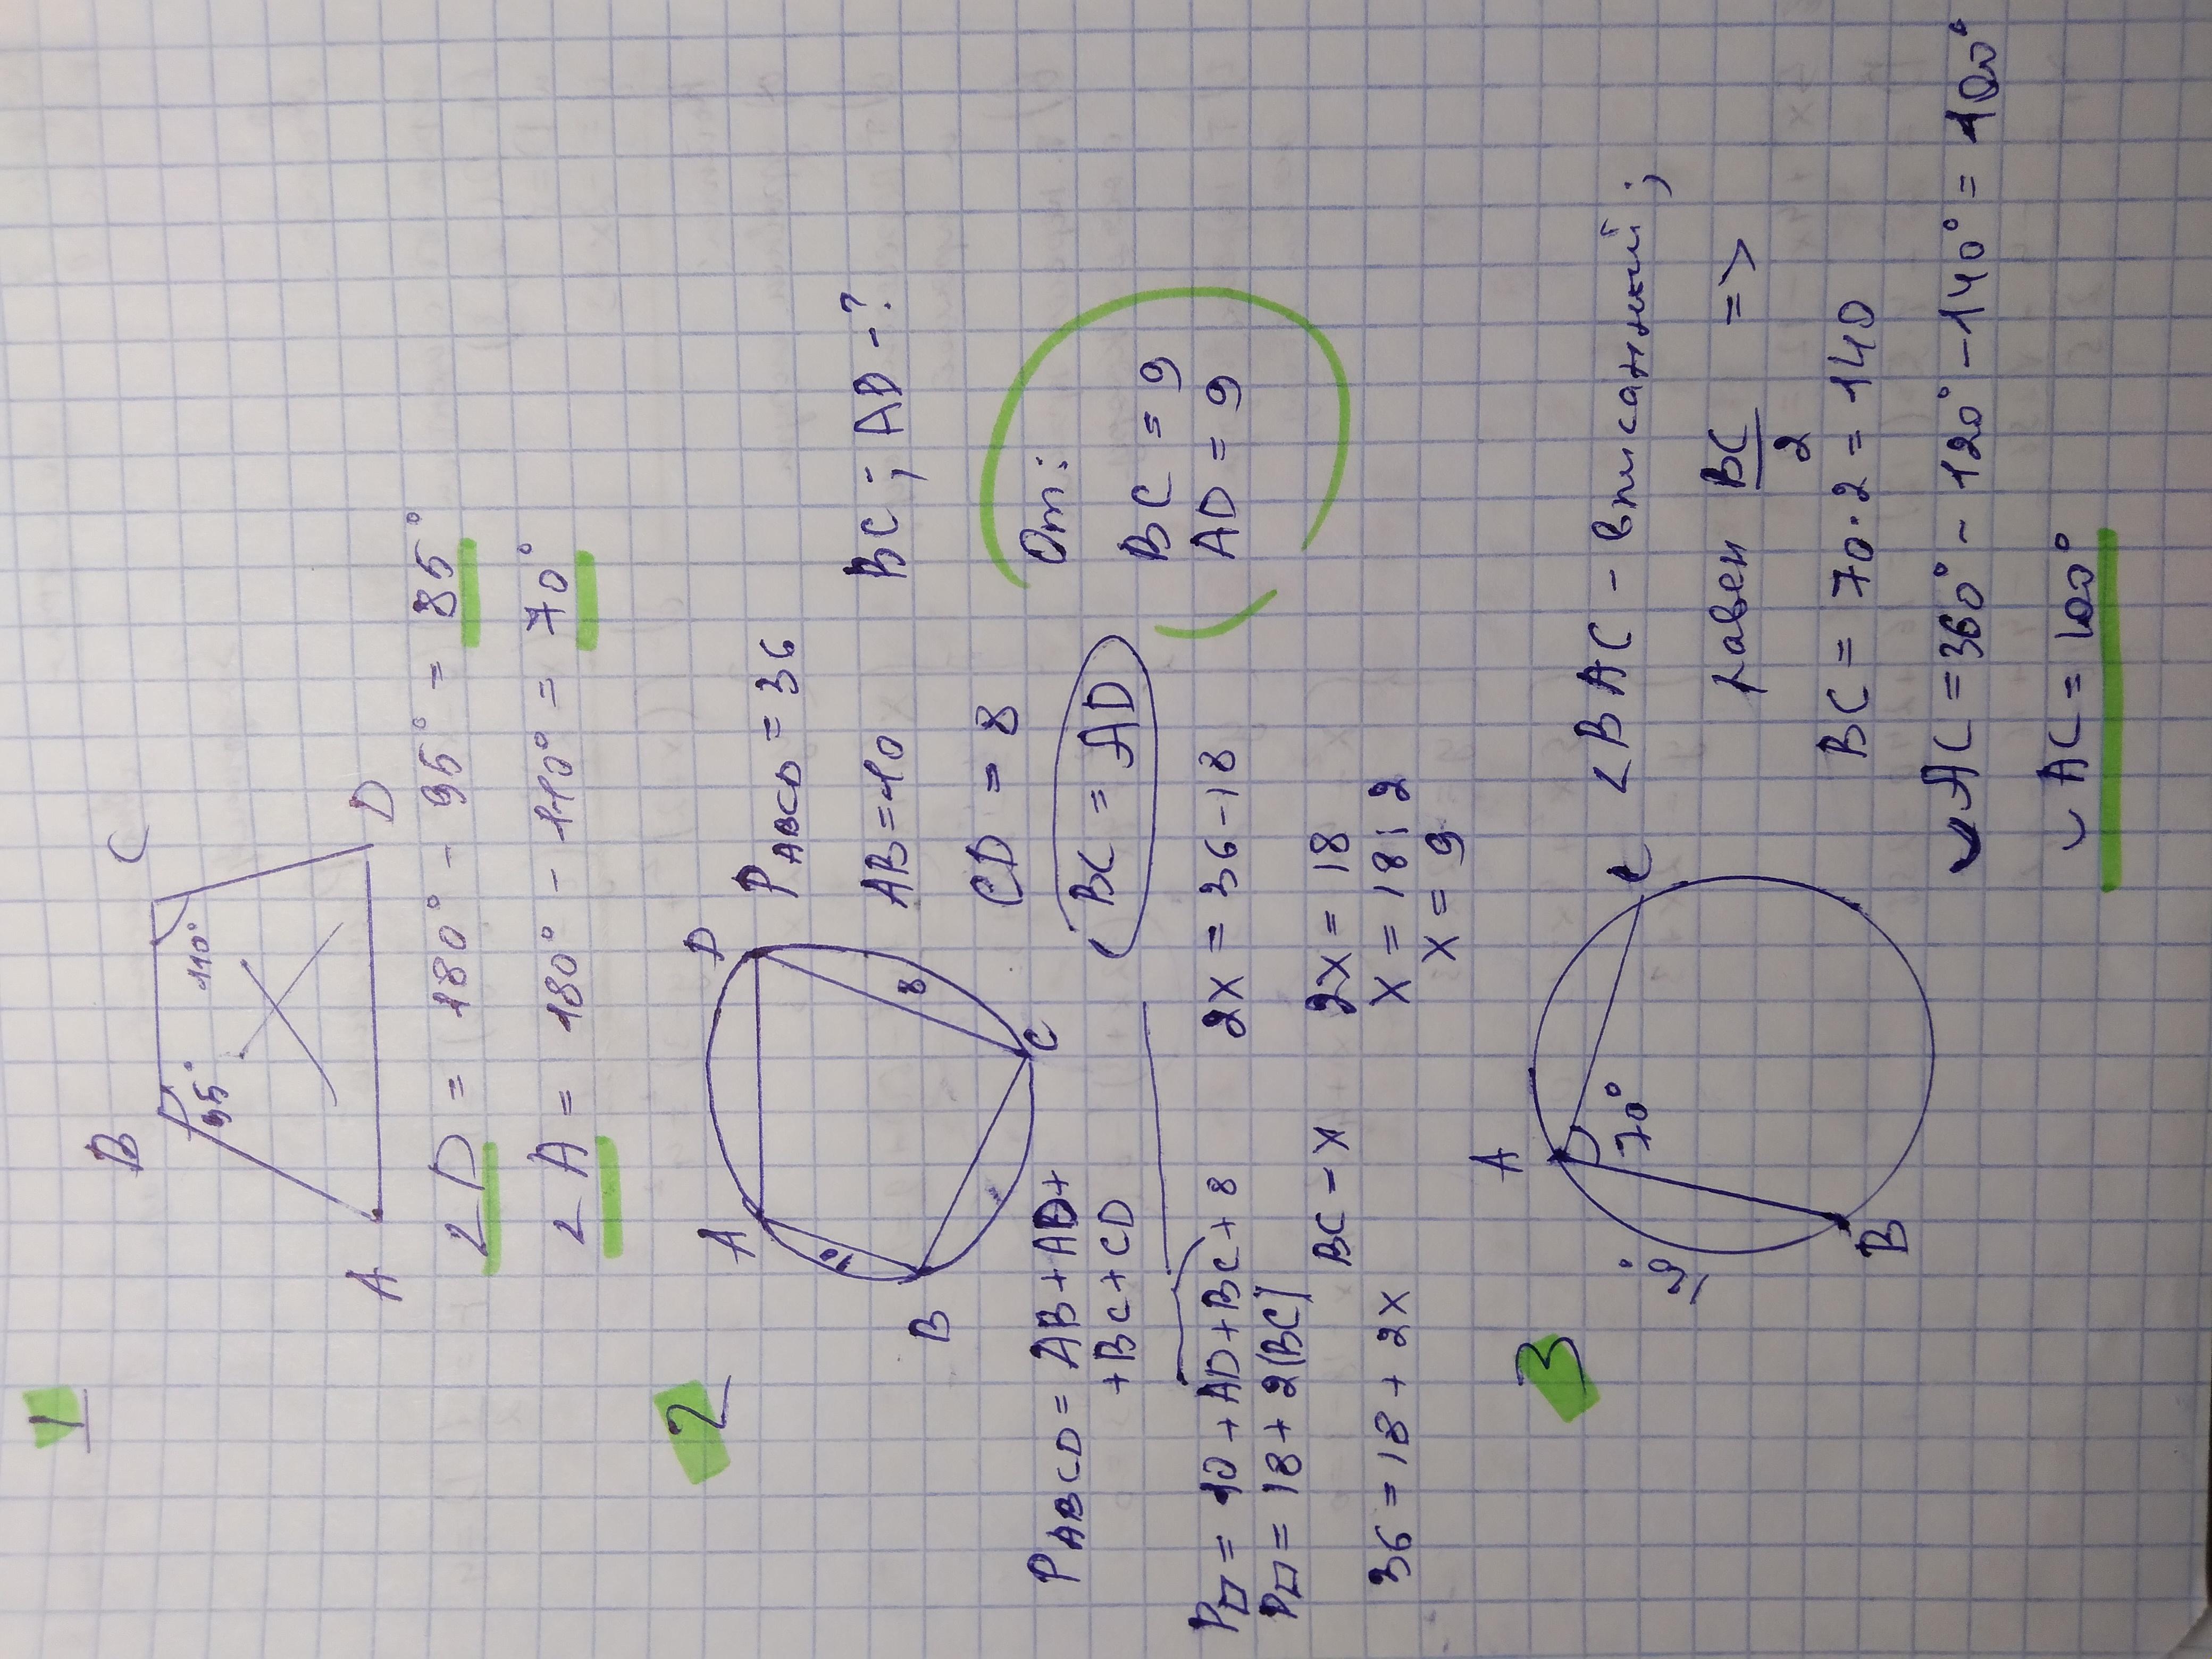 1
B
C
95°
110°
A
D
∠D = 180° - 95° = 85°
∠A = 180° - 110° = 70°
2
A
D
8
B
C
P ABCD = 36
AB = 10
BC; AD - ?
CD = 8
BC = AD
От:
BC = 9
AD = 9
P ABCD = AB + AD +
+ BC + CD
P▱ = 10 + AD + BC + 8
P▱ = 18 + 2(BC)
BC - x
36 = 18 + 2x
2x = 36 - 18
2x = 18
x = 18 : 2
x = 9
3
A
C
70°
B
∠BAC - вписанный;
равен BC/2 =>
BC = 70 · 2 = 140
◡AC = 360° - 120° - 140° = 100°
◡AC = 100°